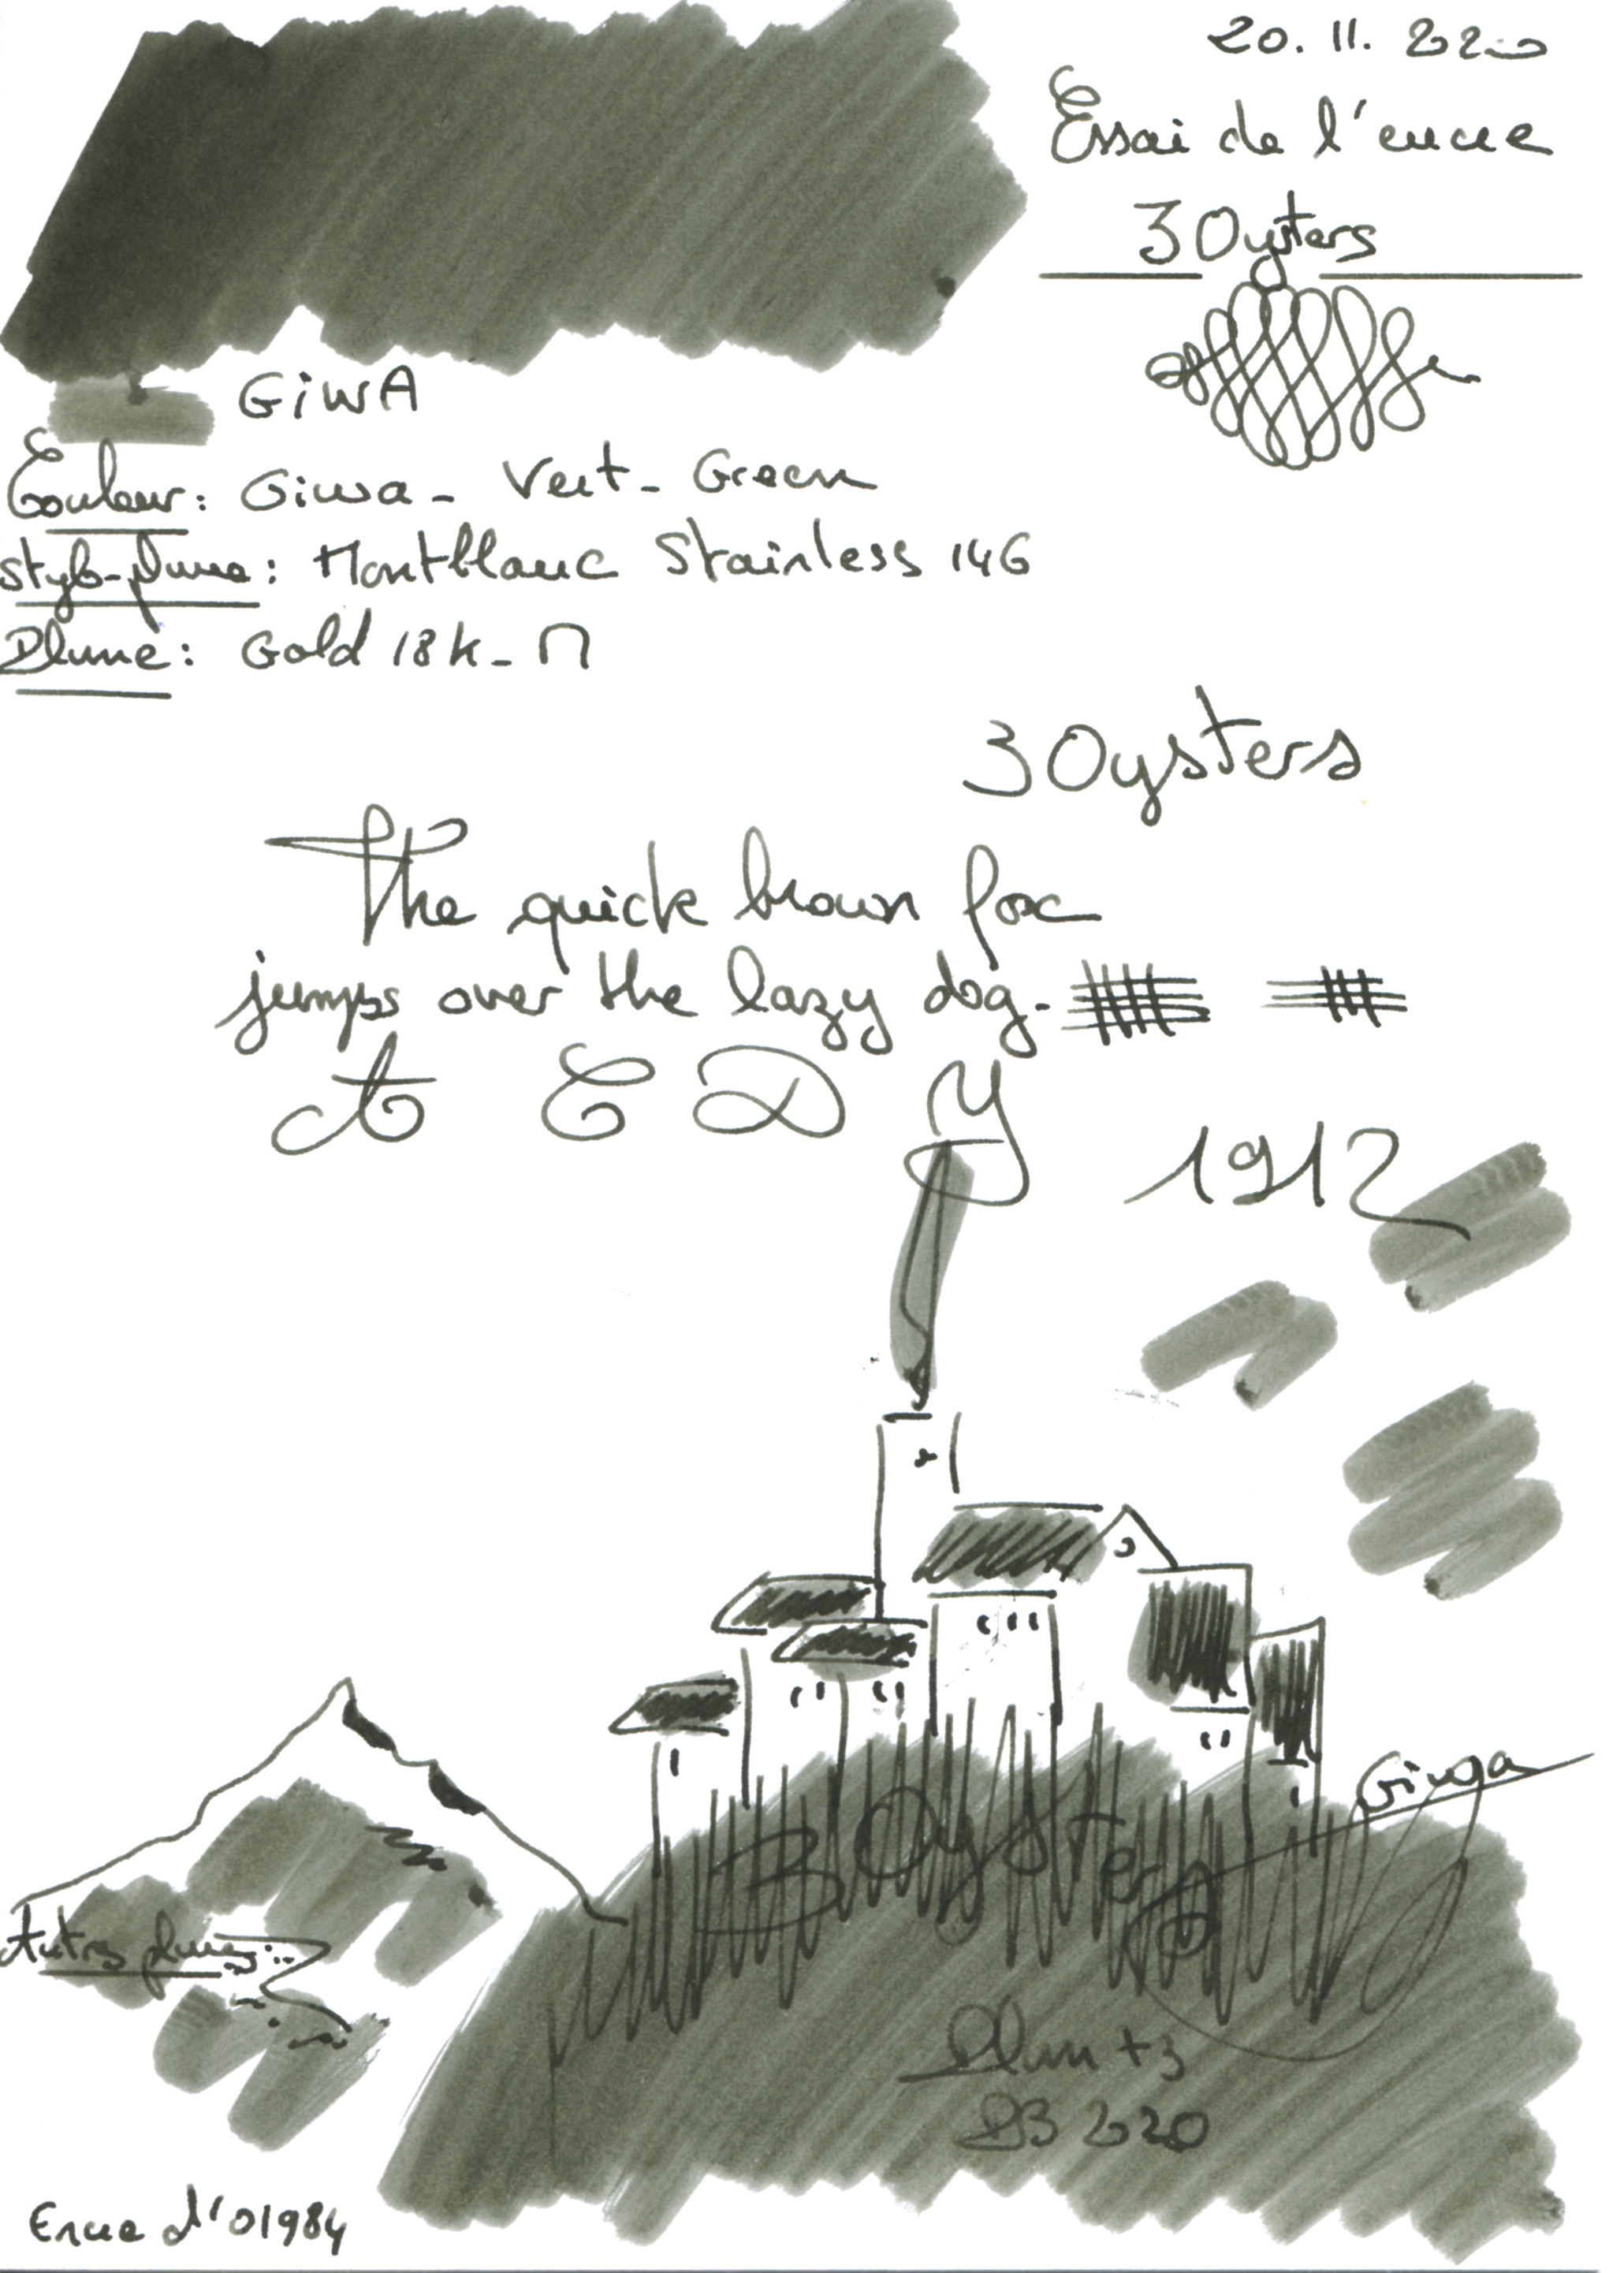 20. 11. 2020
Essai de l'encre
3 Oysters
GiWA
Couleur: Giwa - Vert - Green
Stylo-plume: Montblanc Stainless 146
Plume: Gold 18k - M
3 Oysters
The quick brown fox
jumps over the lazy dog.
A E D Y
1912
Giwa
3 Oysters
Autres plumes:
Plum +3
2020
Encre d'01984